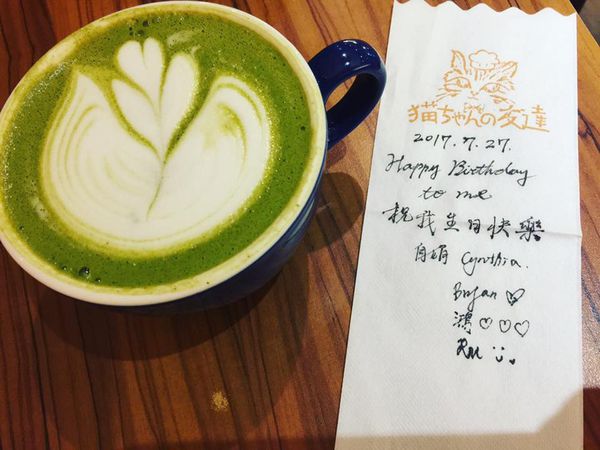 猫ちゃんの友達
2017.7.27.
Happy Birthday
to me
祝我生日快樂
Cynthia.